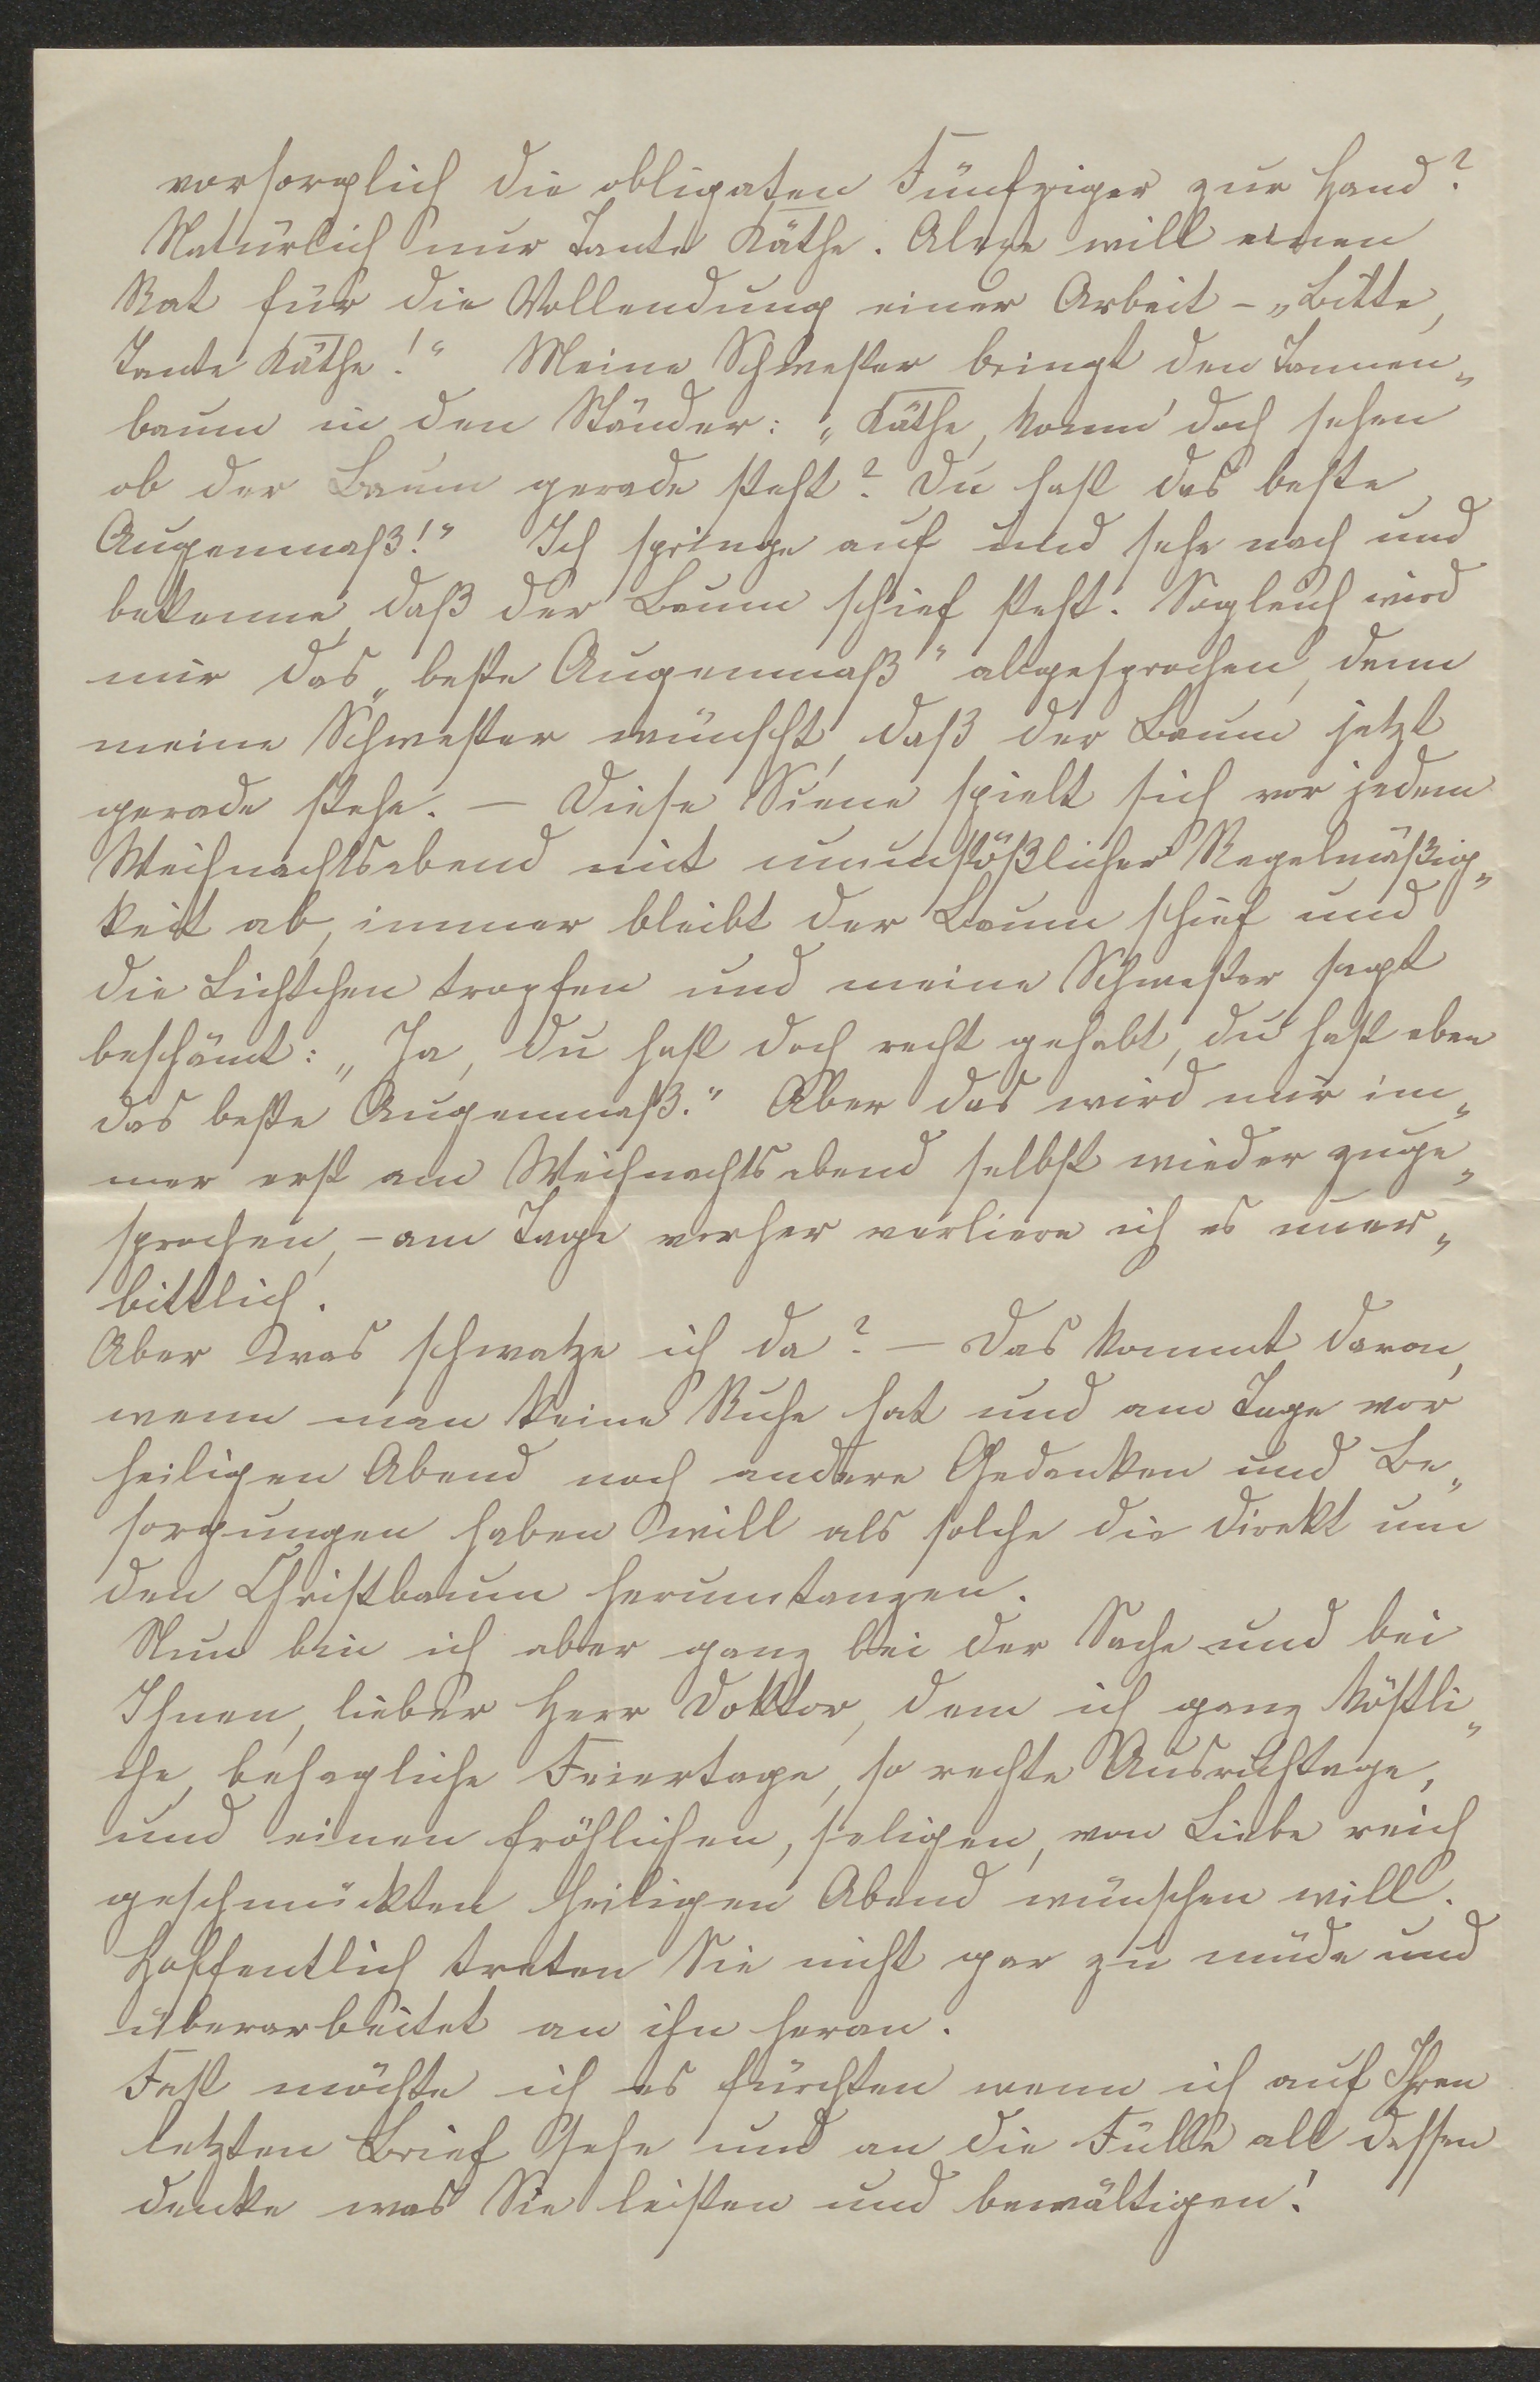 vorsorglich die obligaten Fünfziger zur Hand?
Natürlich nur Tante Käthe. Alexe will einen
Rat für die Vollendung einer Arbeit – „Bitte,
Tante Käthe!“ Meine Schwester bringt den Tannen„
baum in den Ständer: „Käthe, komm' doch sehen
ob der Baum gerade steht? Du hast das beste
Augenmaß!“ Ich springe auf und sehe nach und
bekenne, daß der Baum schief steht. Sogleich wird
mir das „beste Augenmaß“ abgesprochen, denn
meine Schwester wünscht, daß der Baum jetzt
gerade stehe. – Diese Scene spielt sich vor jedem
Weihnachtsabend mit unumstößlicher Regelmäßig„
keit ab, immer bleibt der Baum schief und
die Lichtchen tropfen und meine Schwester sagt
beschämt: „Ja, du hast doch recht gehabt, du hast eben
das beste Augenmaß.“ Aber das wird mir im„
mer erst am Weihnachtsabend selbst wieder zuge„
sprochen, – am Tage vorher verliere ich es uner„
bittlich.
Aber was schwatze ich da? – Das kommt davon,
wenn man keine Ruhe hat und am Tage vor
heiligen Abend noch andere Gedanken und Be„
sorgungen haben will als solche die direkt um
den Christbaum herumtanzen.
Nun bin ich aber ganz bei der Sache und bei
Ihnen, lieber Herr Doktor, dem ich ganz köstli„
che, behagliche Feiertage, so rechte Ausruhtage,
und einen fröhlichen, seligen, von Liebe reich
geschmückten heiligen Abend wünschen will.
Hoffentlich treten Sie nicht gar zu müde und
überarbeitet an ihn heran.
Fast möchte ich es fürchten wenn ich auf Ihren
letzten Brief sehe und an die Fülle all dessen
denke was Sie leisten und bewältigen!